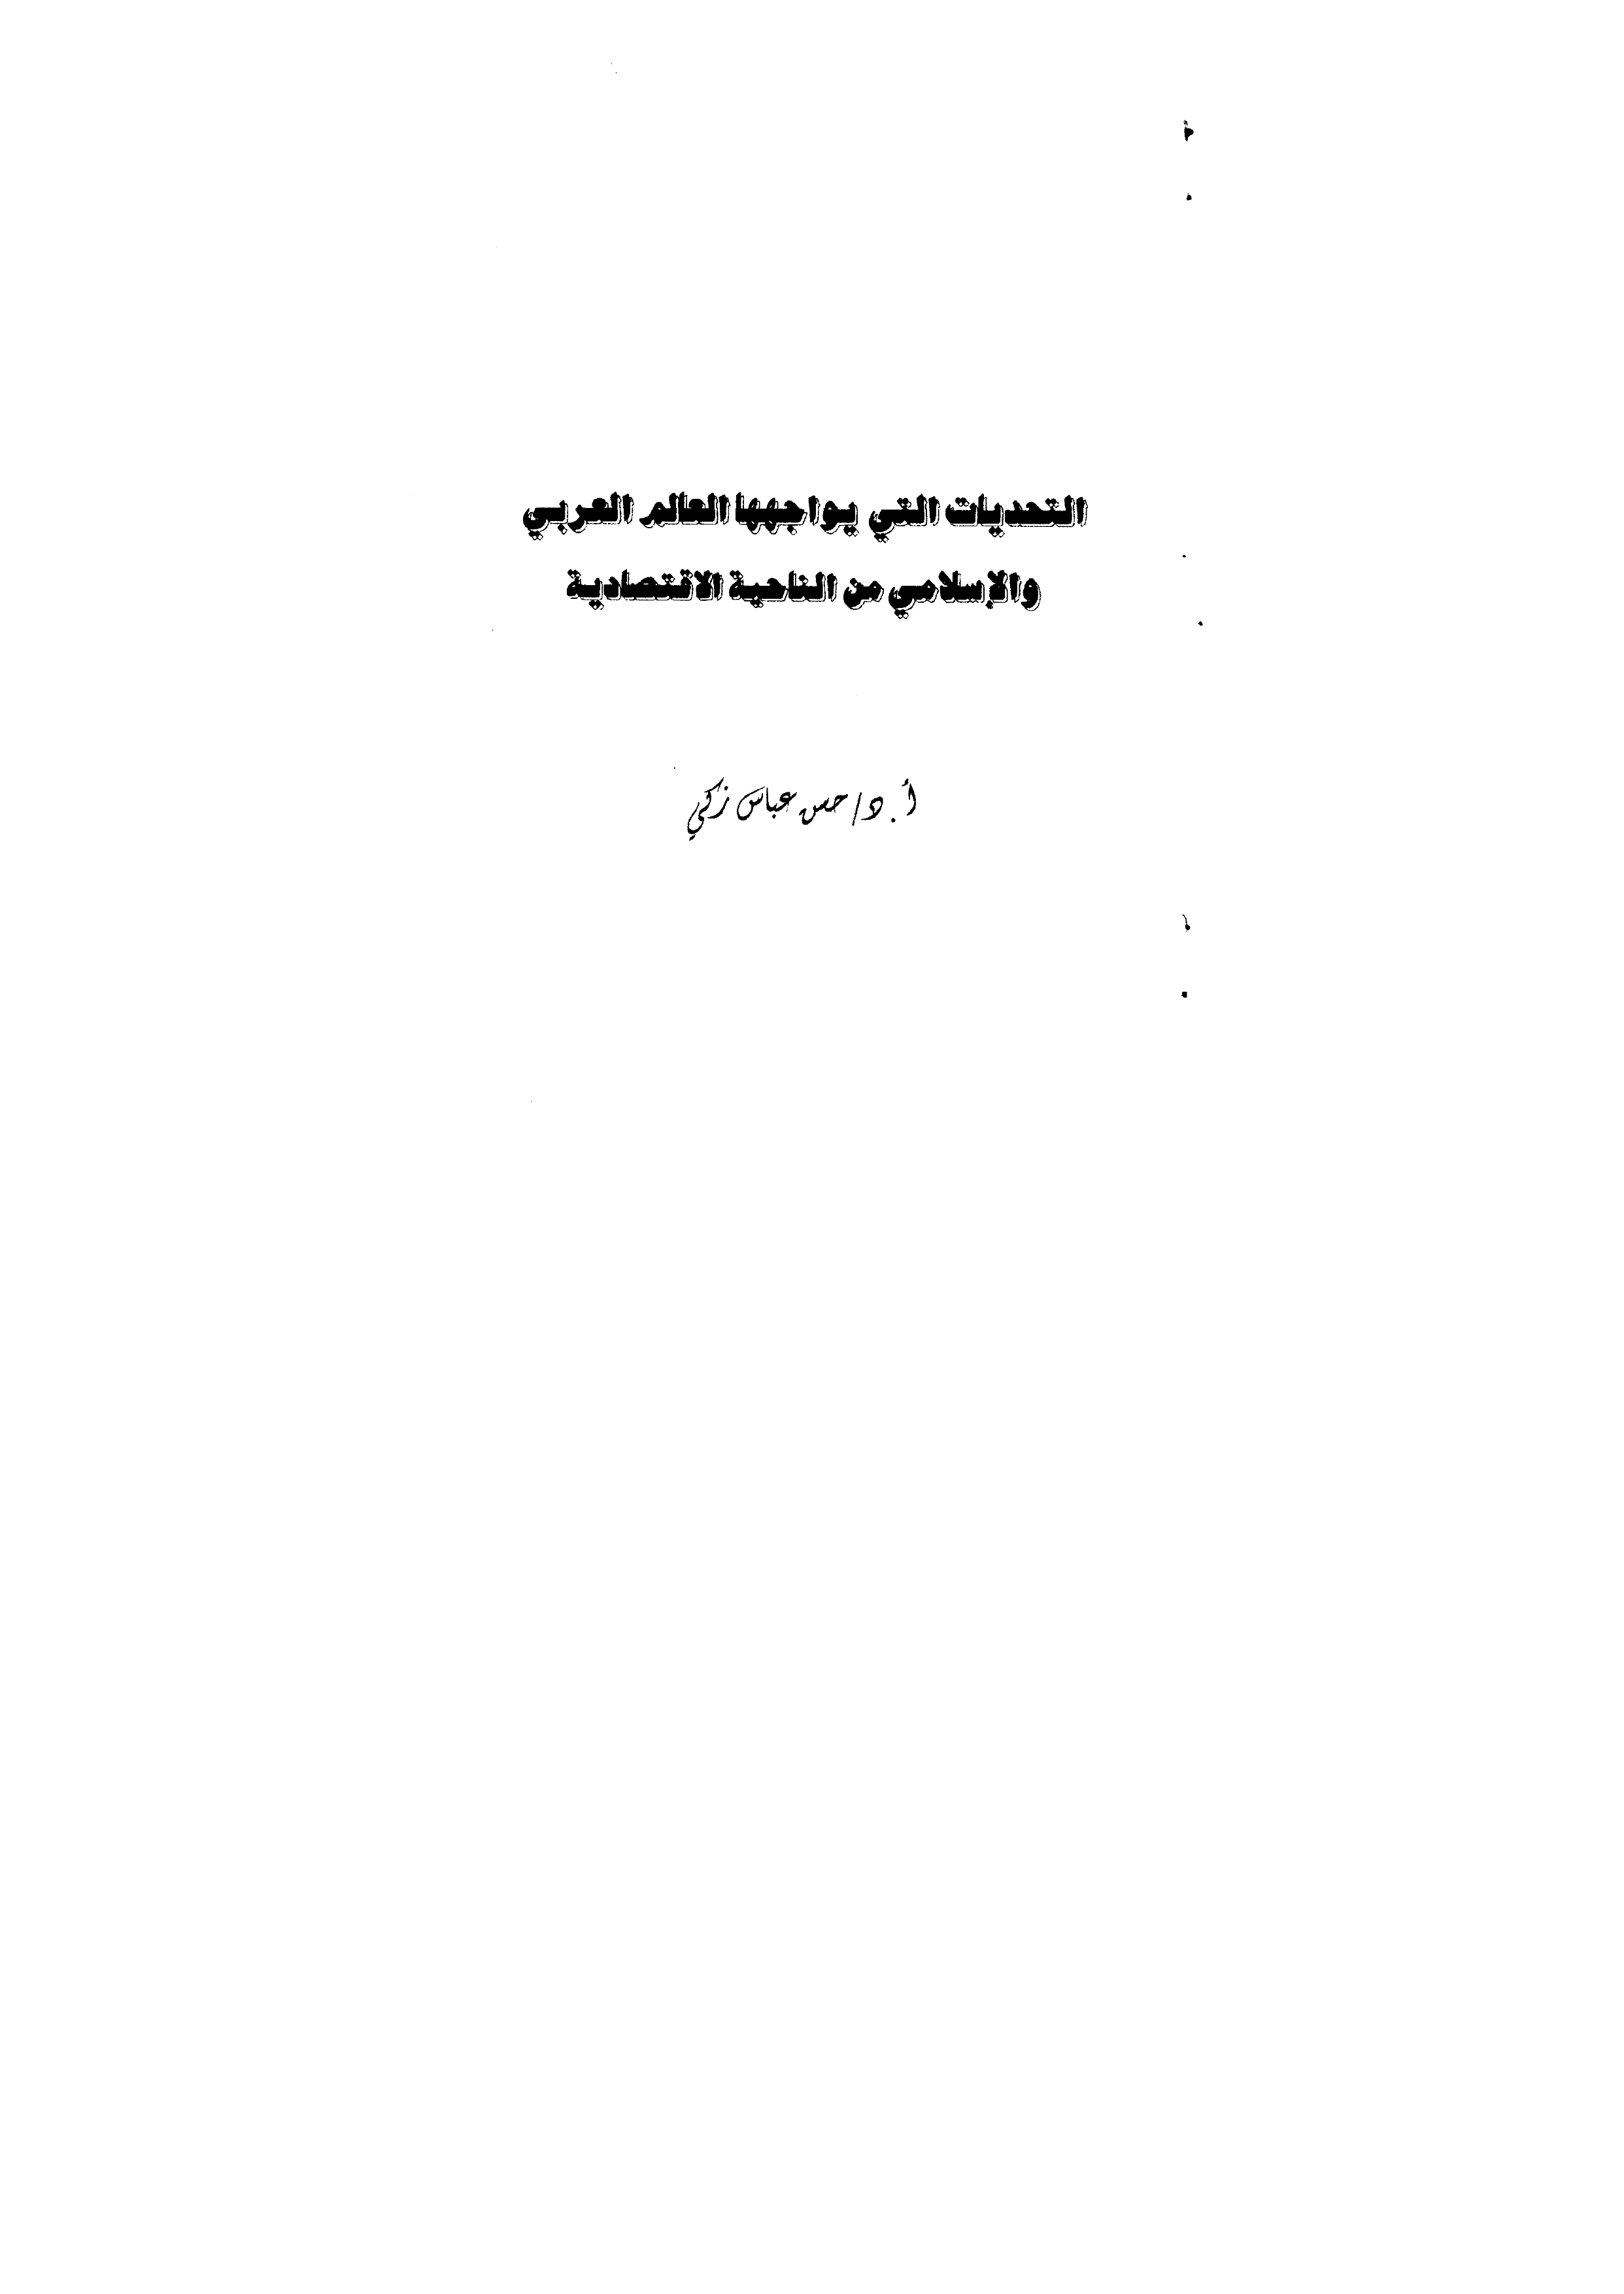 التحديات التي يواجهها العالم العربي
والإسلامي من الناحية الاقتصادية
أ. د/ حسن عباس زكي